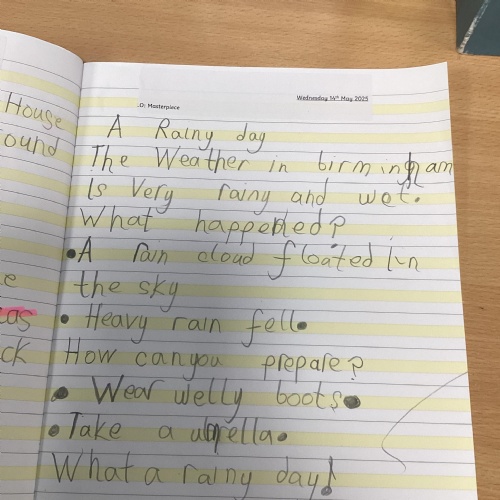 House
ound
e
cas
ck
Wednesday 14th May 2025
.O: Masterpiece
A Rainy day
The Weather in birmingham
Is Very rainy and wet.
What happened?
•A rain cloud floated in
the sky
• Heavy rain fell.
How can you prepare?
• Wear welly boots.
• Take a umbrella.
What a rainy day!